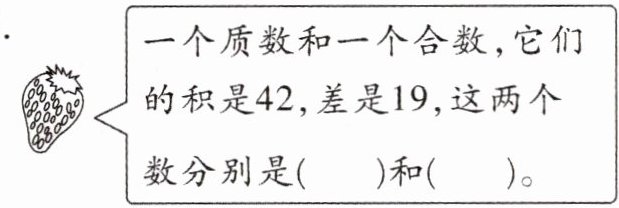 一个质数和一个合数,它们
的积是42,差是19,这两个
数分别是(　　)和(　　)。